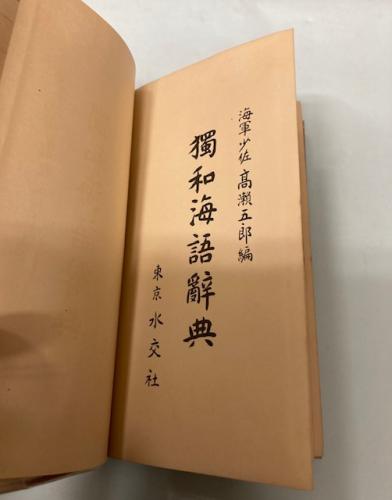 海軍少佐 高瀨五郎編
獨和海語辭典
東京 水交社